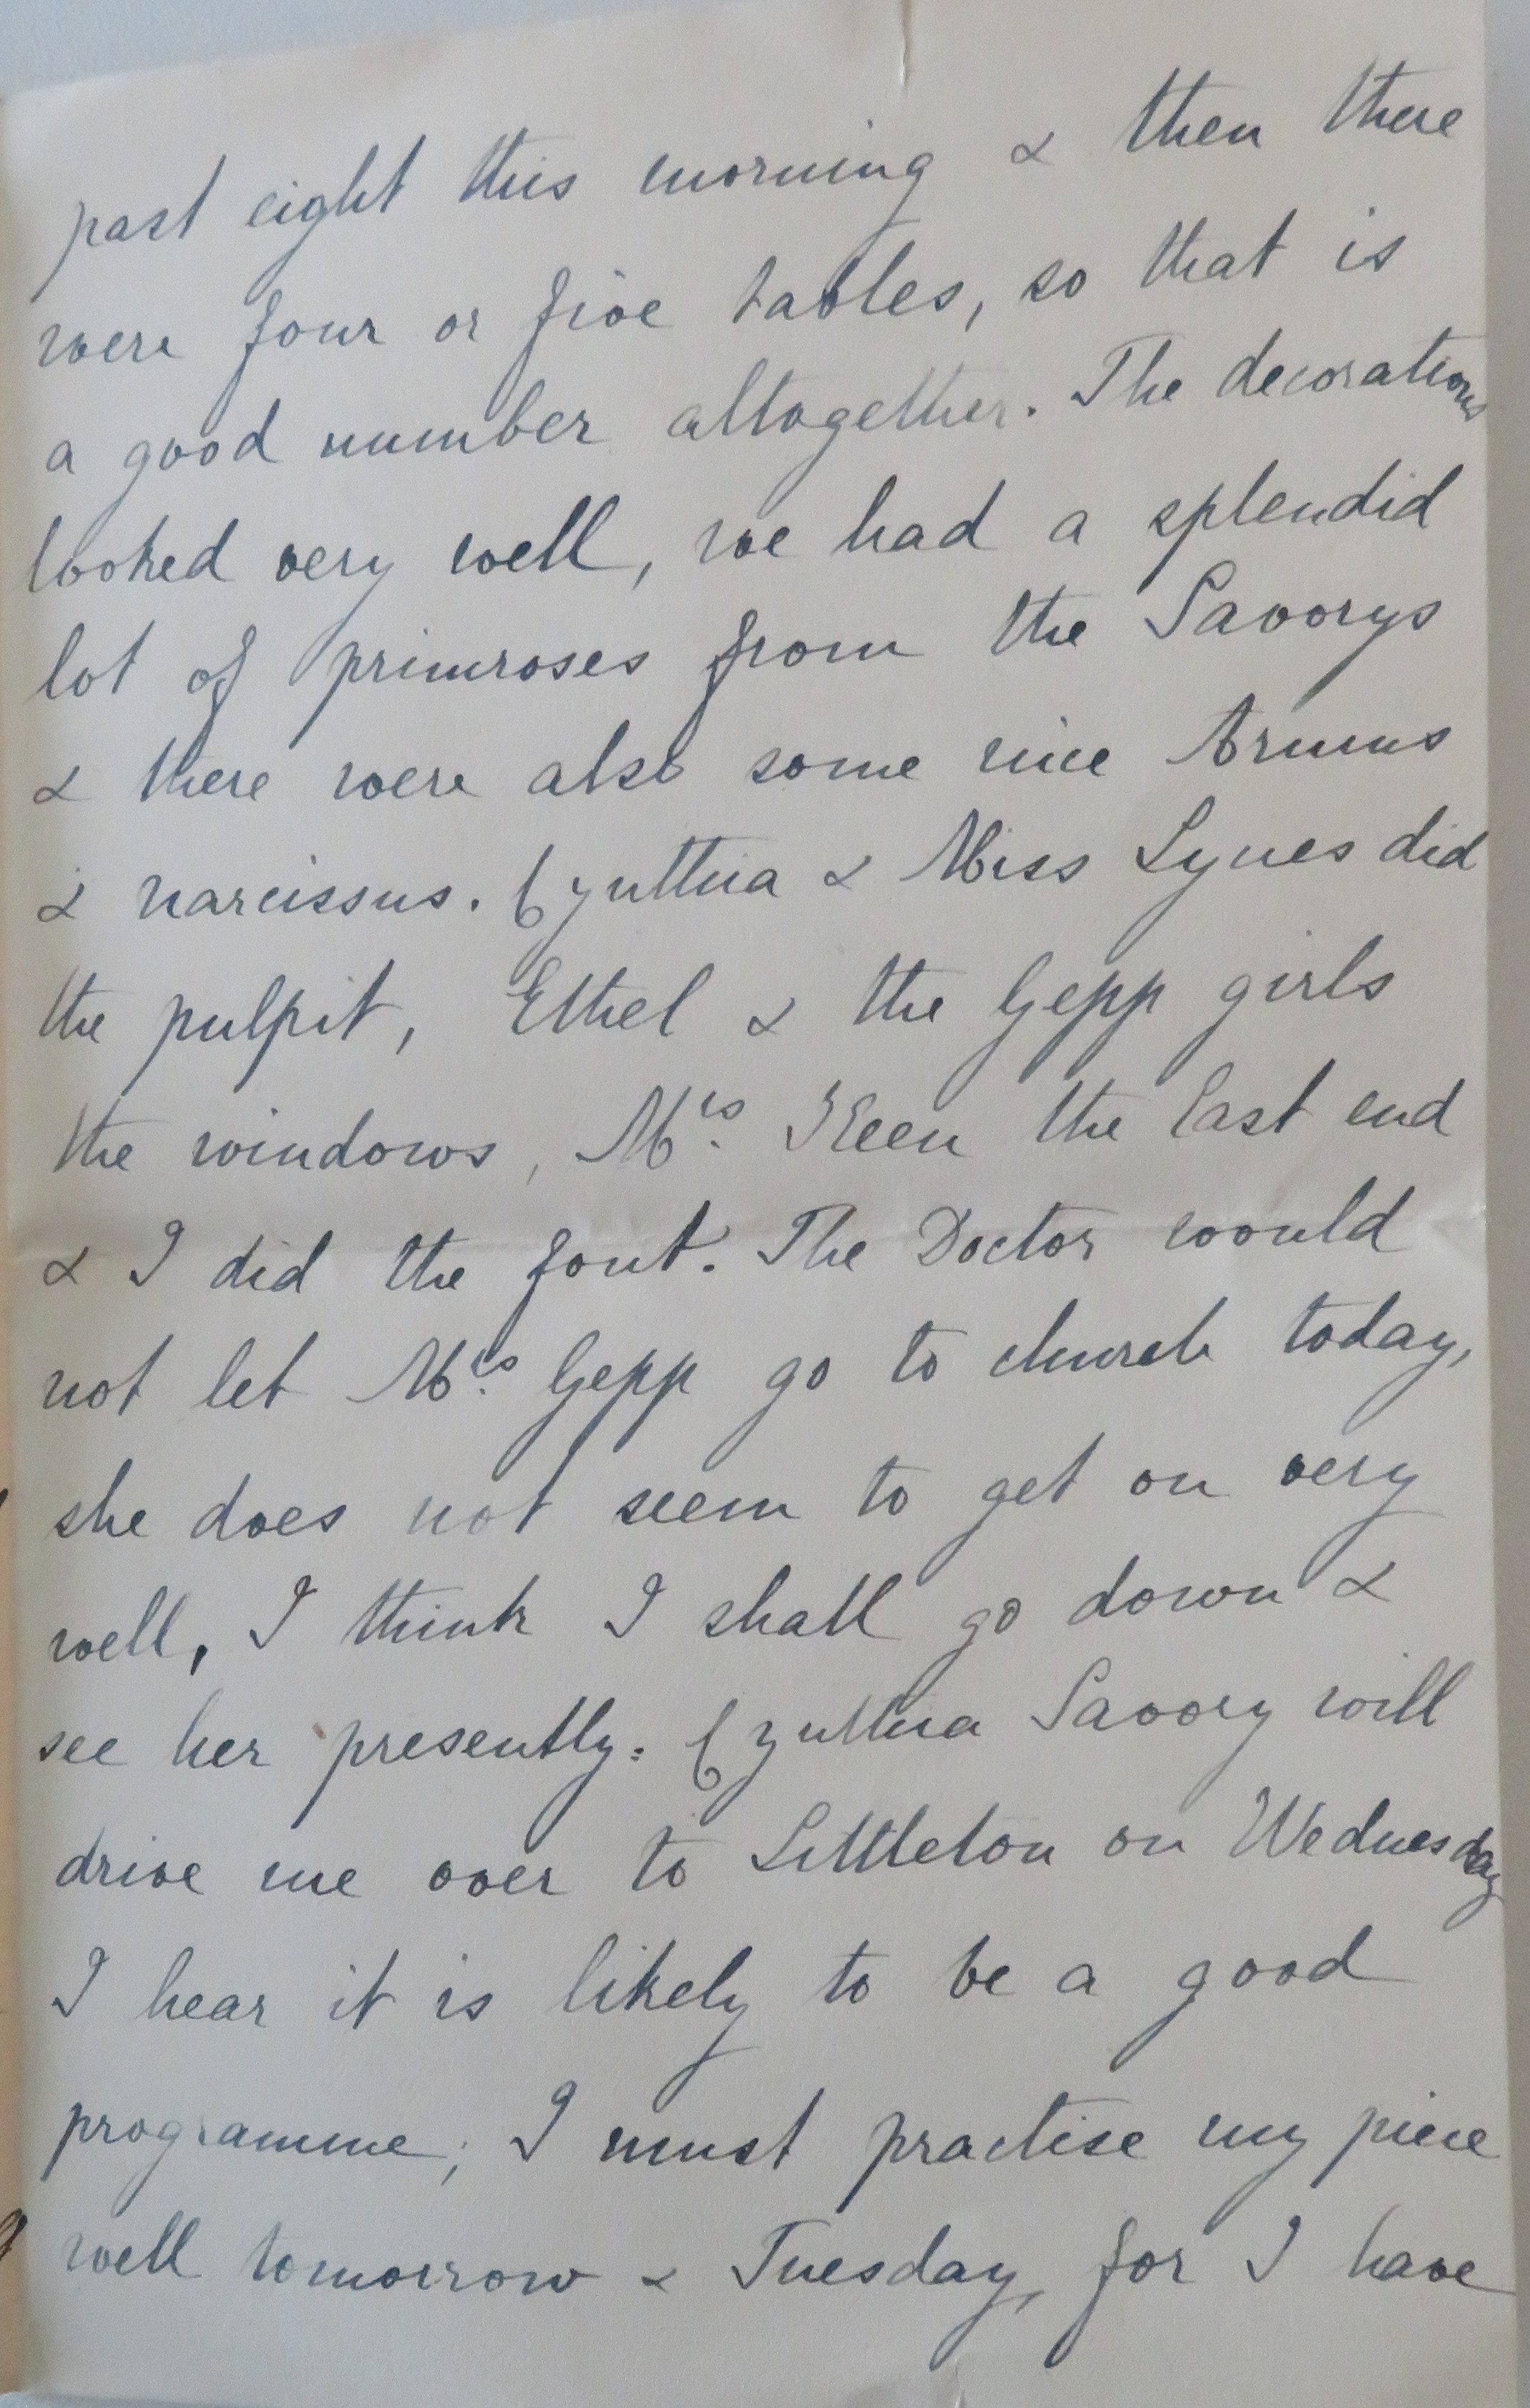 past eight this morning & then there
were four or five tables, so that is
a good number altogether. The decorations
looked very well, we had a splendid
lot of primroses from the Savorys
& there were also some nice Arums
& narcissus. Cynthia & Miss Lynes did
the pulpit, Ethel & the Gepp girls
the windows, Mrs. Keen the East end
& I did the font. The Doctor would
not let Mrs. Gepp go to church today,
she does not seem to get on very
well, I think I shall go down &
see her presently. Cynthia Savory will
drive me over to Littleton on Wednesday
I hear it is likely to be a good
programme; I must practise my piece
well tomorrow & Tuesday, for I have